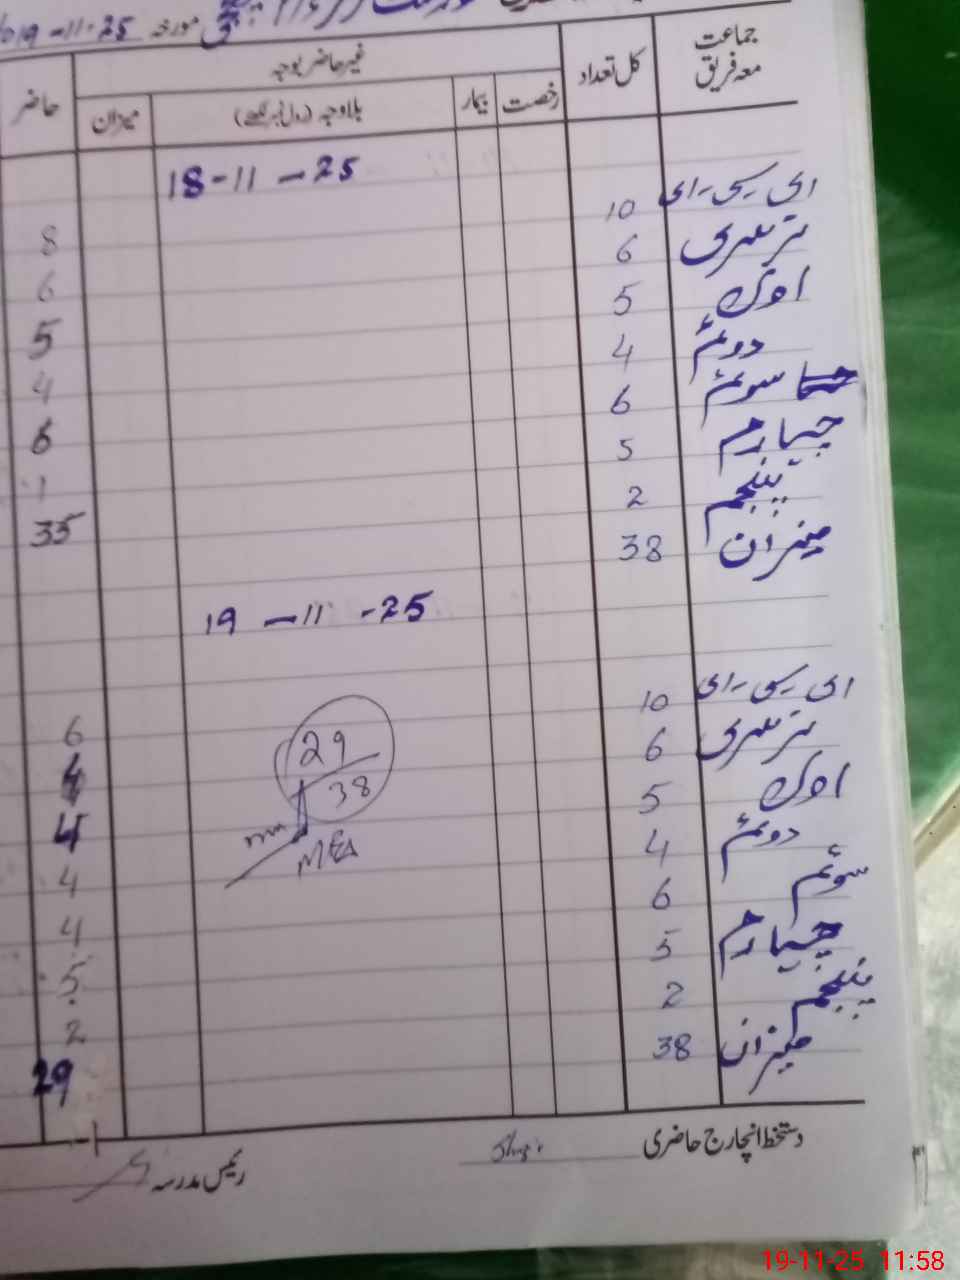 مورخہ 19-11-25
جماعت معہ فریق کل تعداد غیر حاضر بوجہ حاضر
رخصت بیمار بلاوجہ (رول نمبر لکھیے) میزان
18-11-25
ای سی ای 10 8
نرسری 6 6
اول 5 5
دوئم 4 4
سوئم 6 6
چہارم 5
پنجم 2 1
میزان 38 35
19-11-25
ای سی ای 10 6
نرسری 6 4
اول 5 4
دوئم 4 4
سوئم 6 4
چہارم 5 5
پنجم 2 2
میزان 38 29
29
38
MEA
دستخط انچارج حاضری رئیس مدرسہ
19-11-25 11:58